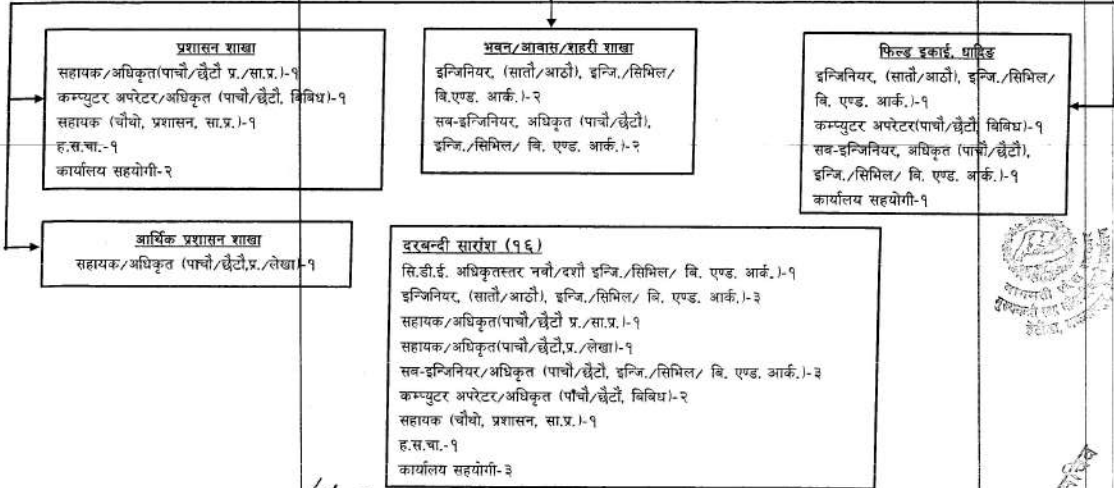 प्रशासन शाखा
सहायक/अधिकृत(पाचौ/छैटौ प्र./सा.प्र.)-१
कम्प्युटर अपरेटर/अधिकृत (पाचौ/छैटौ, बिबिध)-१
सहायक (चौथो, प्रशासन, सा.प्र.)-१
ह.स.चा.-१
कार्यालय सहयोगी-२
भवन/आवास/शहरी शाखा
इन्जिनियर, (सातौ/आठौ), इन्जि./सिभिल/
बि.एण्ड. आर्क.)-२
सब-इन्जिनियर, अधिकृत (पाचौ/छैटौ),
इन्जि./सिभिल/ बि. एण्ड. आर्क.)-२
फिल्ड इकाई, धादिङ
इन्जिनियर, (सातौ/आठौ), इन्जि./सिभिल/
बि. एण्ड. आर्क.)-१
कम्प्युटर अपरेटर(पाचौ/छैटौ, बिबिध)-१
सब-इन्जिनियर, अधिकृत (पाचौ/छैटौ),
इन्जि./सिभिल/ बि. एण्ड. आर्क.)-१
कार्यालय सहयोगी-१
आर्थिक प्रशासन शाखा
सहायक/अधिकृत (पाचौ/छैटौ,प्र./लेखा)-१
दरबन्दी सारांश (१६)
सि.डी.ई. अधिकृतस्तर नवौ/दशौ इन्जि./सिभिल/ बि. एण्ड. आर्क.)-१
इन्जिनियर, (सातौ/आठौ), इन्जि./सिभिल/ बि. एण्ड. आर्क.)-३
सहायक/अधिकृत(पाचौ/छैटौ प्र./सा.प्र.)-१
सहायक/अधिकृत(पाचौ/छैटौ,प्र./लेखा)-१
सब-इन्जिनियर/अधिकृत (पाचौ/छैटौ, इन्जि./सिभिल/ बि. एण्ड. आर्क.)-३
कम्प्युटर अपरेटर/अधिकृत (पाँचौ/छैटौ, बिबिध)-२
सहायक (चौथो, प्रशासन, सा.प्र.)-१
ह.स.चा.-१
कार्यालय सहयोगी-३